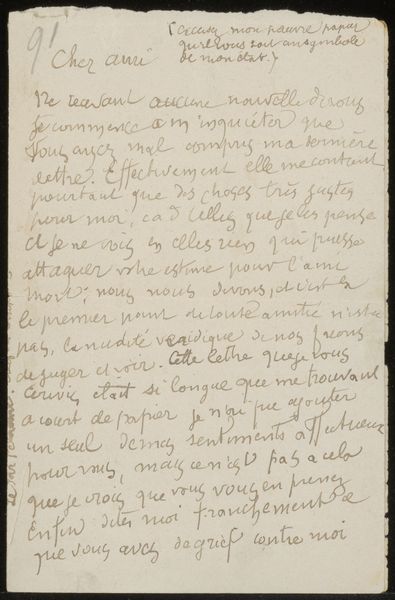 91
(Excusez mon pauvre papier
qu'il vous soit un symbole
de mon état.)
Cher ami
Ne recevant aucune nouvelle de vous
je commence a m'inquiéter que
vous ayez mal compris ma dernière
lettre. Effectivement elle ne contient
pourtant que des choses très justes
pour moi, c a d telles que je les pense
et je ne vois en elles rien qui puisse
attaquer votre estime pour l'ami
mort; nous nous devons, et c'est là
le premier point de toute amitié n'est ce
pas, la nudité véridique de nos façons
de juger et voir. Cette lettre que je vous
écrivis était si longue que me trouvant
a court de papier je n'ai pu ajouter
un seul de mes sentiments affectueux
pour vous, mais ce n'est pas a cela
que je crois que vous vous en prenez
Enfin dites moi franchement ce
que vous avez de grief contre moi